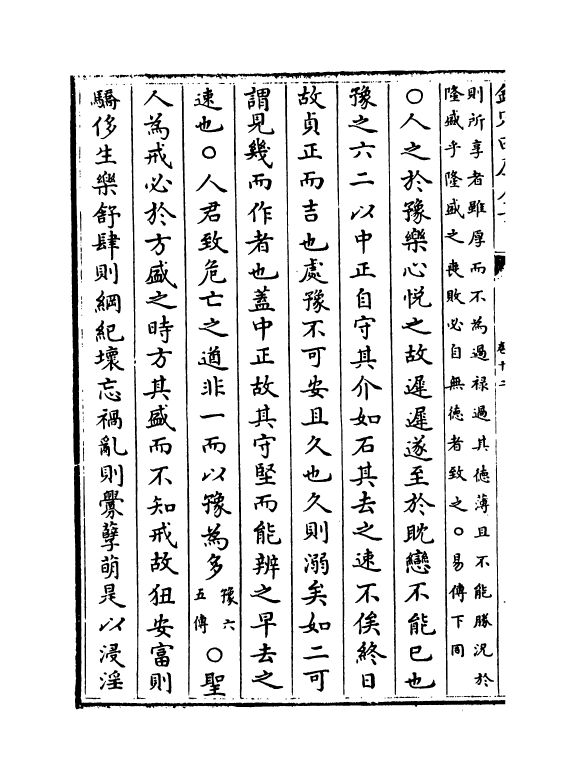 則所享者雖厚而不為過禄過其德薄且不能勝況於
隆盛乎隆盛之喪敗必自無德者致之○易傳下同
○人之於豫樂心悦之故遲遲遂至於耽戀不能已也
豫之六二以中正自守其介如石其去之速不俟終日
故貞正而吉也處豫不可安且久也久則溺矣如二可
謂見幾而作者也蓋中正故其守堅而能辨之早去之
速也○人君致危亡之道非一而以豫為多豫六五傳○聖
人為戒必於方盛之時方其盛而不知戒故狃安富則
驕侈生樂舒肆則綱紀壞忘禍亂則釁孽萌是以浸淫